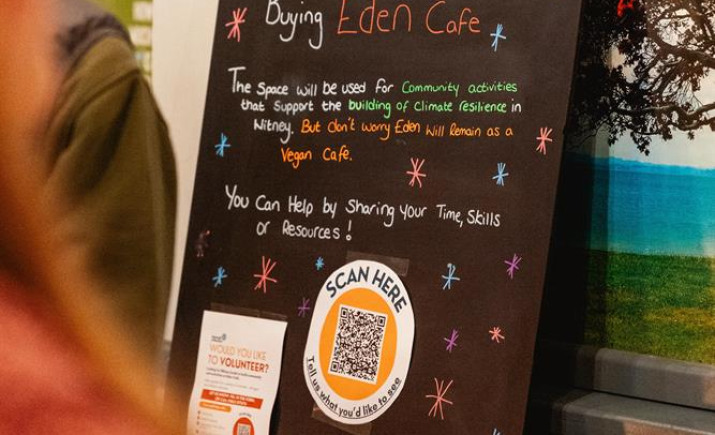 Buying Eden Cafe
The Space will be used for Community activities
that Support the building of Climate resilience in
Witney. But don't worry Eden Will Remain as a
Vegan Cafe.
You Can Help by Sharing Your Time, Skills
or Resources!
SCAN HERE
Tell us what you'd like to see
WOULD YOU LIKE
TO VOLUNTEER?